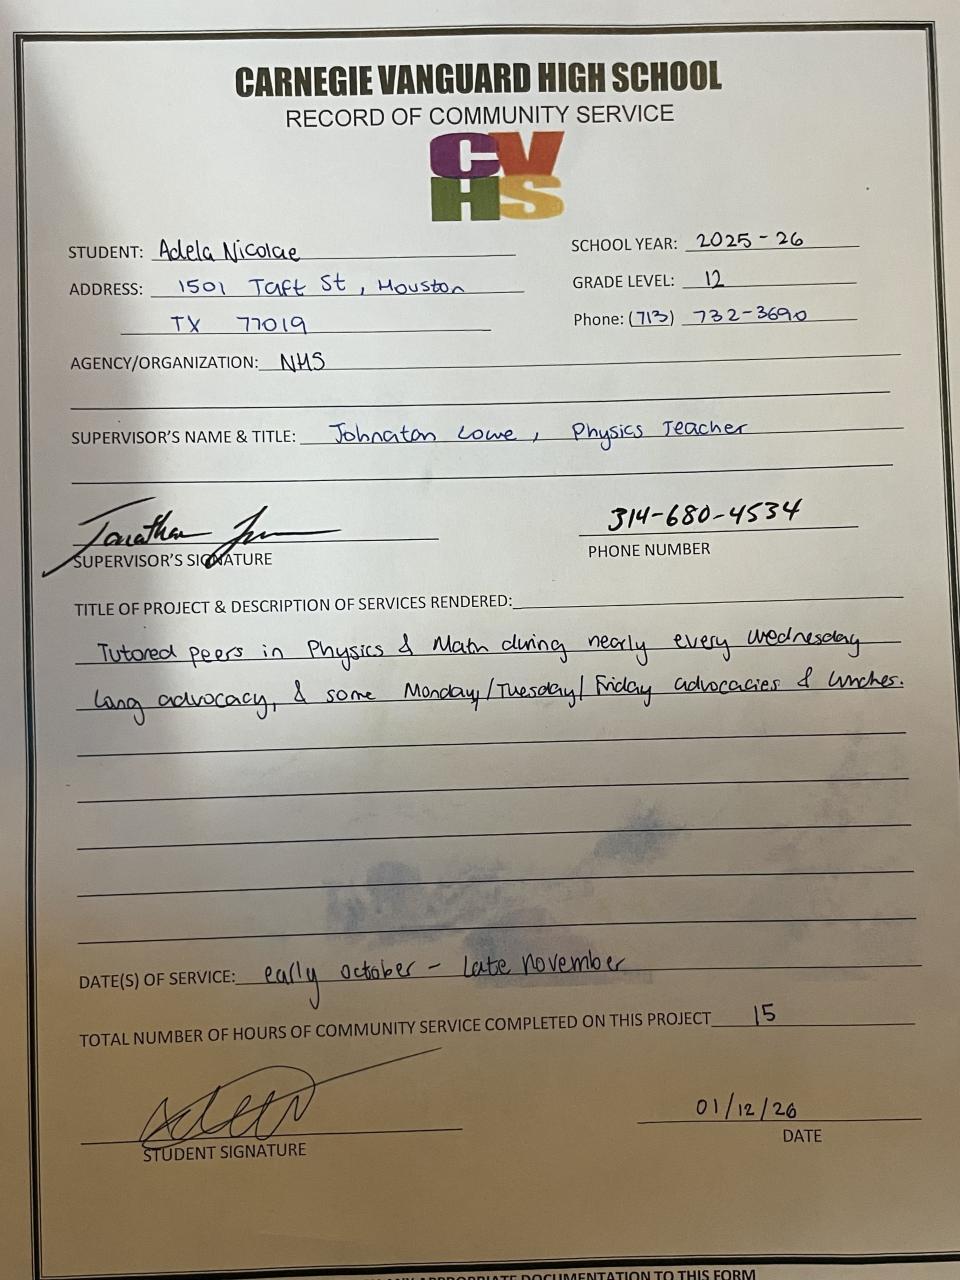 CARNEGIE VANGUARD HIGH SCHOOL
RECORD OF COMMUNITY SERVICE
CV
HS
STUDENT: Adela Nicolae
SCHOOL YEAR: 2025-26
ADDRESS: 1501 Taft St, Houston
GRADE LEVEL: 12
TX 77019
Phone: (713) 732-3690
AGENCY/ORGANIZATION: NHS
SUPERVISOR'S NAME & TITLE: Johnaton Lowe, Physics Teacher
Jonathan
314-680-4534
SUPERVISOR'S SIGNATURE
PHONE NUMBER
TITLE OF PROJECT & DESCRIPTION OF SERVICES RENDERED:
Tutored peers in Physics & Math during nearly every Wednesday
long advocacy, & some Monday/Tuesday/Friday advocacies & lunches.
DATE(S) OF SERVICE: early october - late november
TOTAL NUMBER OF HOURS OF COMMUNITY SERVICE COMPLETED ON THIS PROJECT 15
01/12/26
STUDENT SIGNATURE
DATE
ANY APPROPRIATE DOCUMENTATION TO THIS FORM